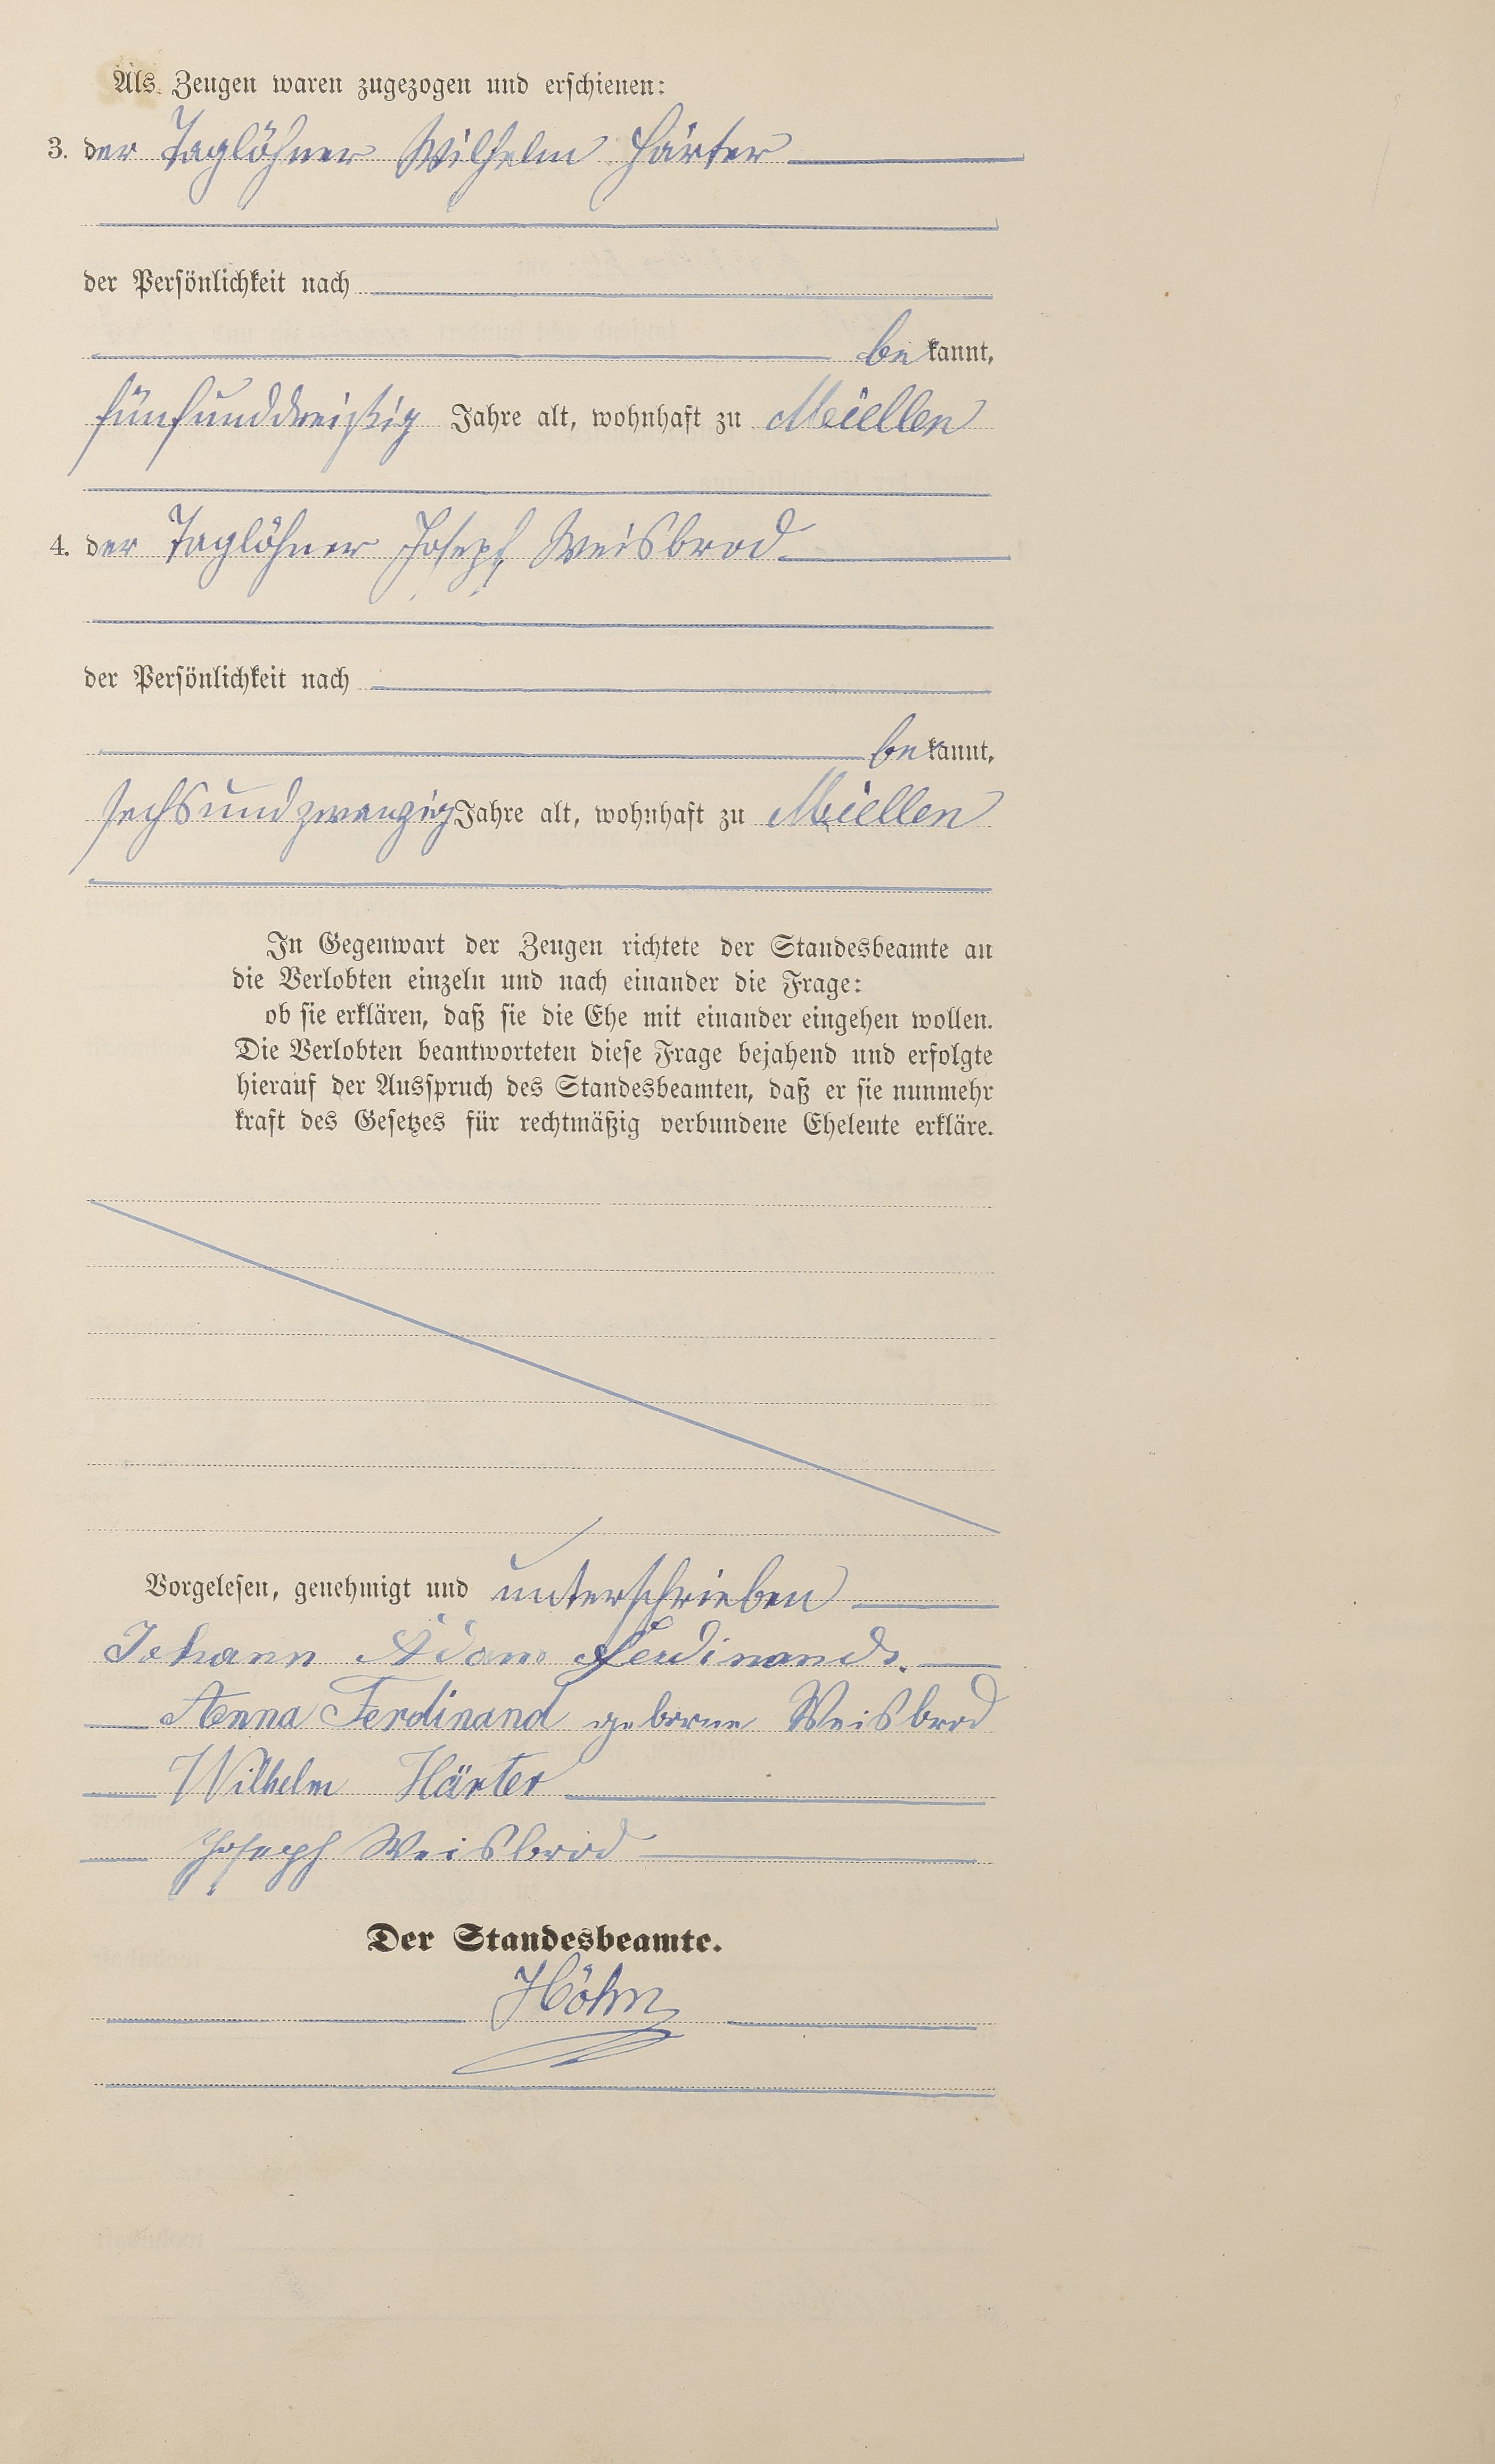 Als Zeugen waren zugezogen und erschienen:
3. der Taglöhner Wilhelm Härter
der Persönlichkeit nach
bekannt,
fünfunddreißig Jahre alt, wohnhaft zu Miellen
4. der Taglöhner Joseph Weisbrod
der Persönlichkeit nach
bekannt,
sechsundzwanzig Jahre alt, wohnhaft zu Miellen
In Gegenwart der Zeugen richtete der Standesbeamte an
die Verlobten einzeln und nach einander die Frage:
ob sie erklären, daß sie die Ehe mit einander eingehen wollen.
Die Verlobten beantworteten diese Frage bejahend und erfolgte
hierauf der Ausspruch des Standesbeamten, daß er sie nunmehr
kraft des Gesetzes für rechtmäßig verbundene Eheleute erkläre.
Vorgelesen, genehmigt und unterschrieben
Johann Adam Ferdinand.
Anna Ferdinand geborne Weisbrod
Wilhelm Härter
Joseph Weisbrod
Der Standesbeamte.
Höhn